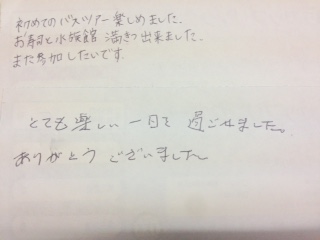 初めてのバスツアー楽しめました。
お寿司と水族館 満きつ出来ました。
また参加したいです。
とても楽しい一日を過ごせました。
ありがとうございました